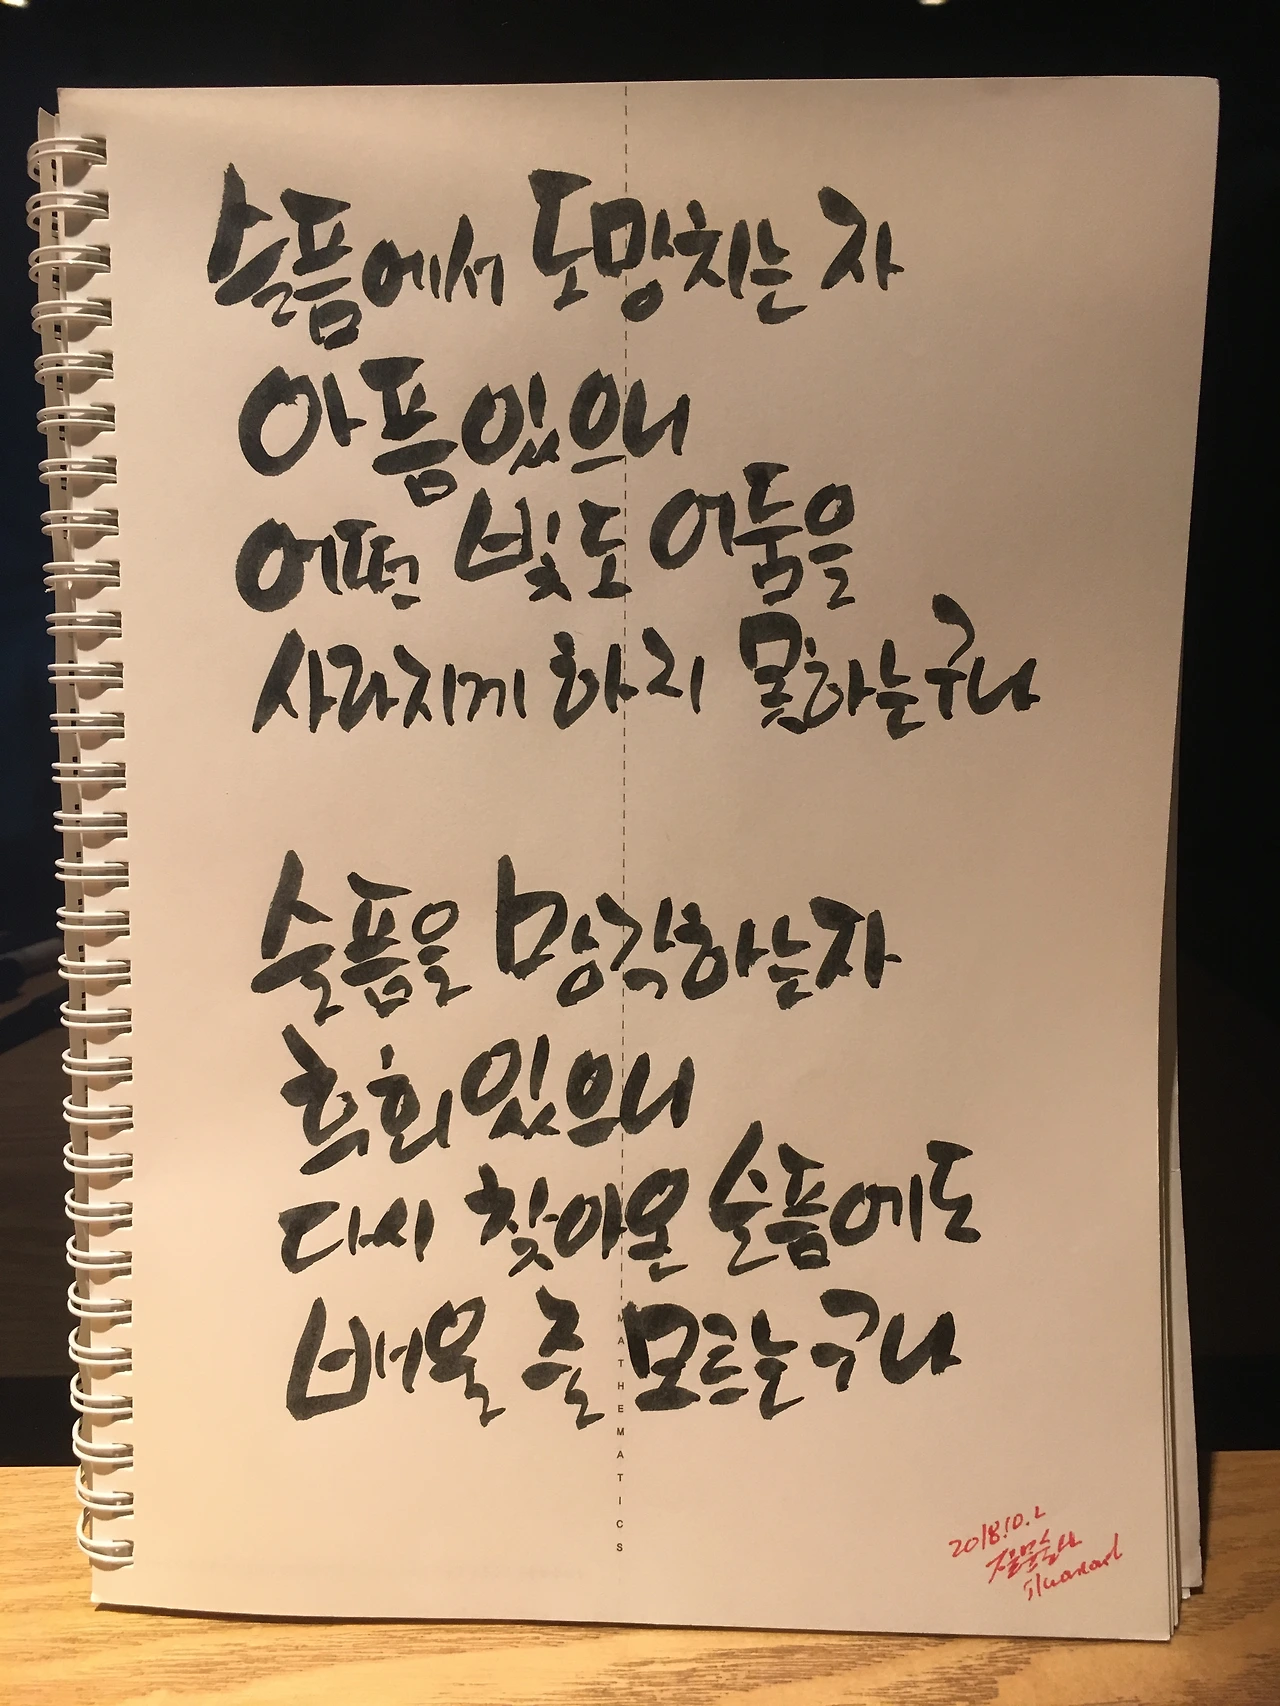 슬픔에서 도망치는 자
아픔있으니
어떤 빛도 어둠을
사라지게 하지 못하는구나
슬픔을 망각하는자
후회있으니
다시 찾아온 슬픔에도
배울 줄 모르는구나
MATHEMATICS
2018.10.2